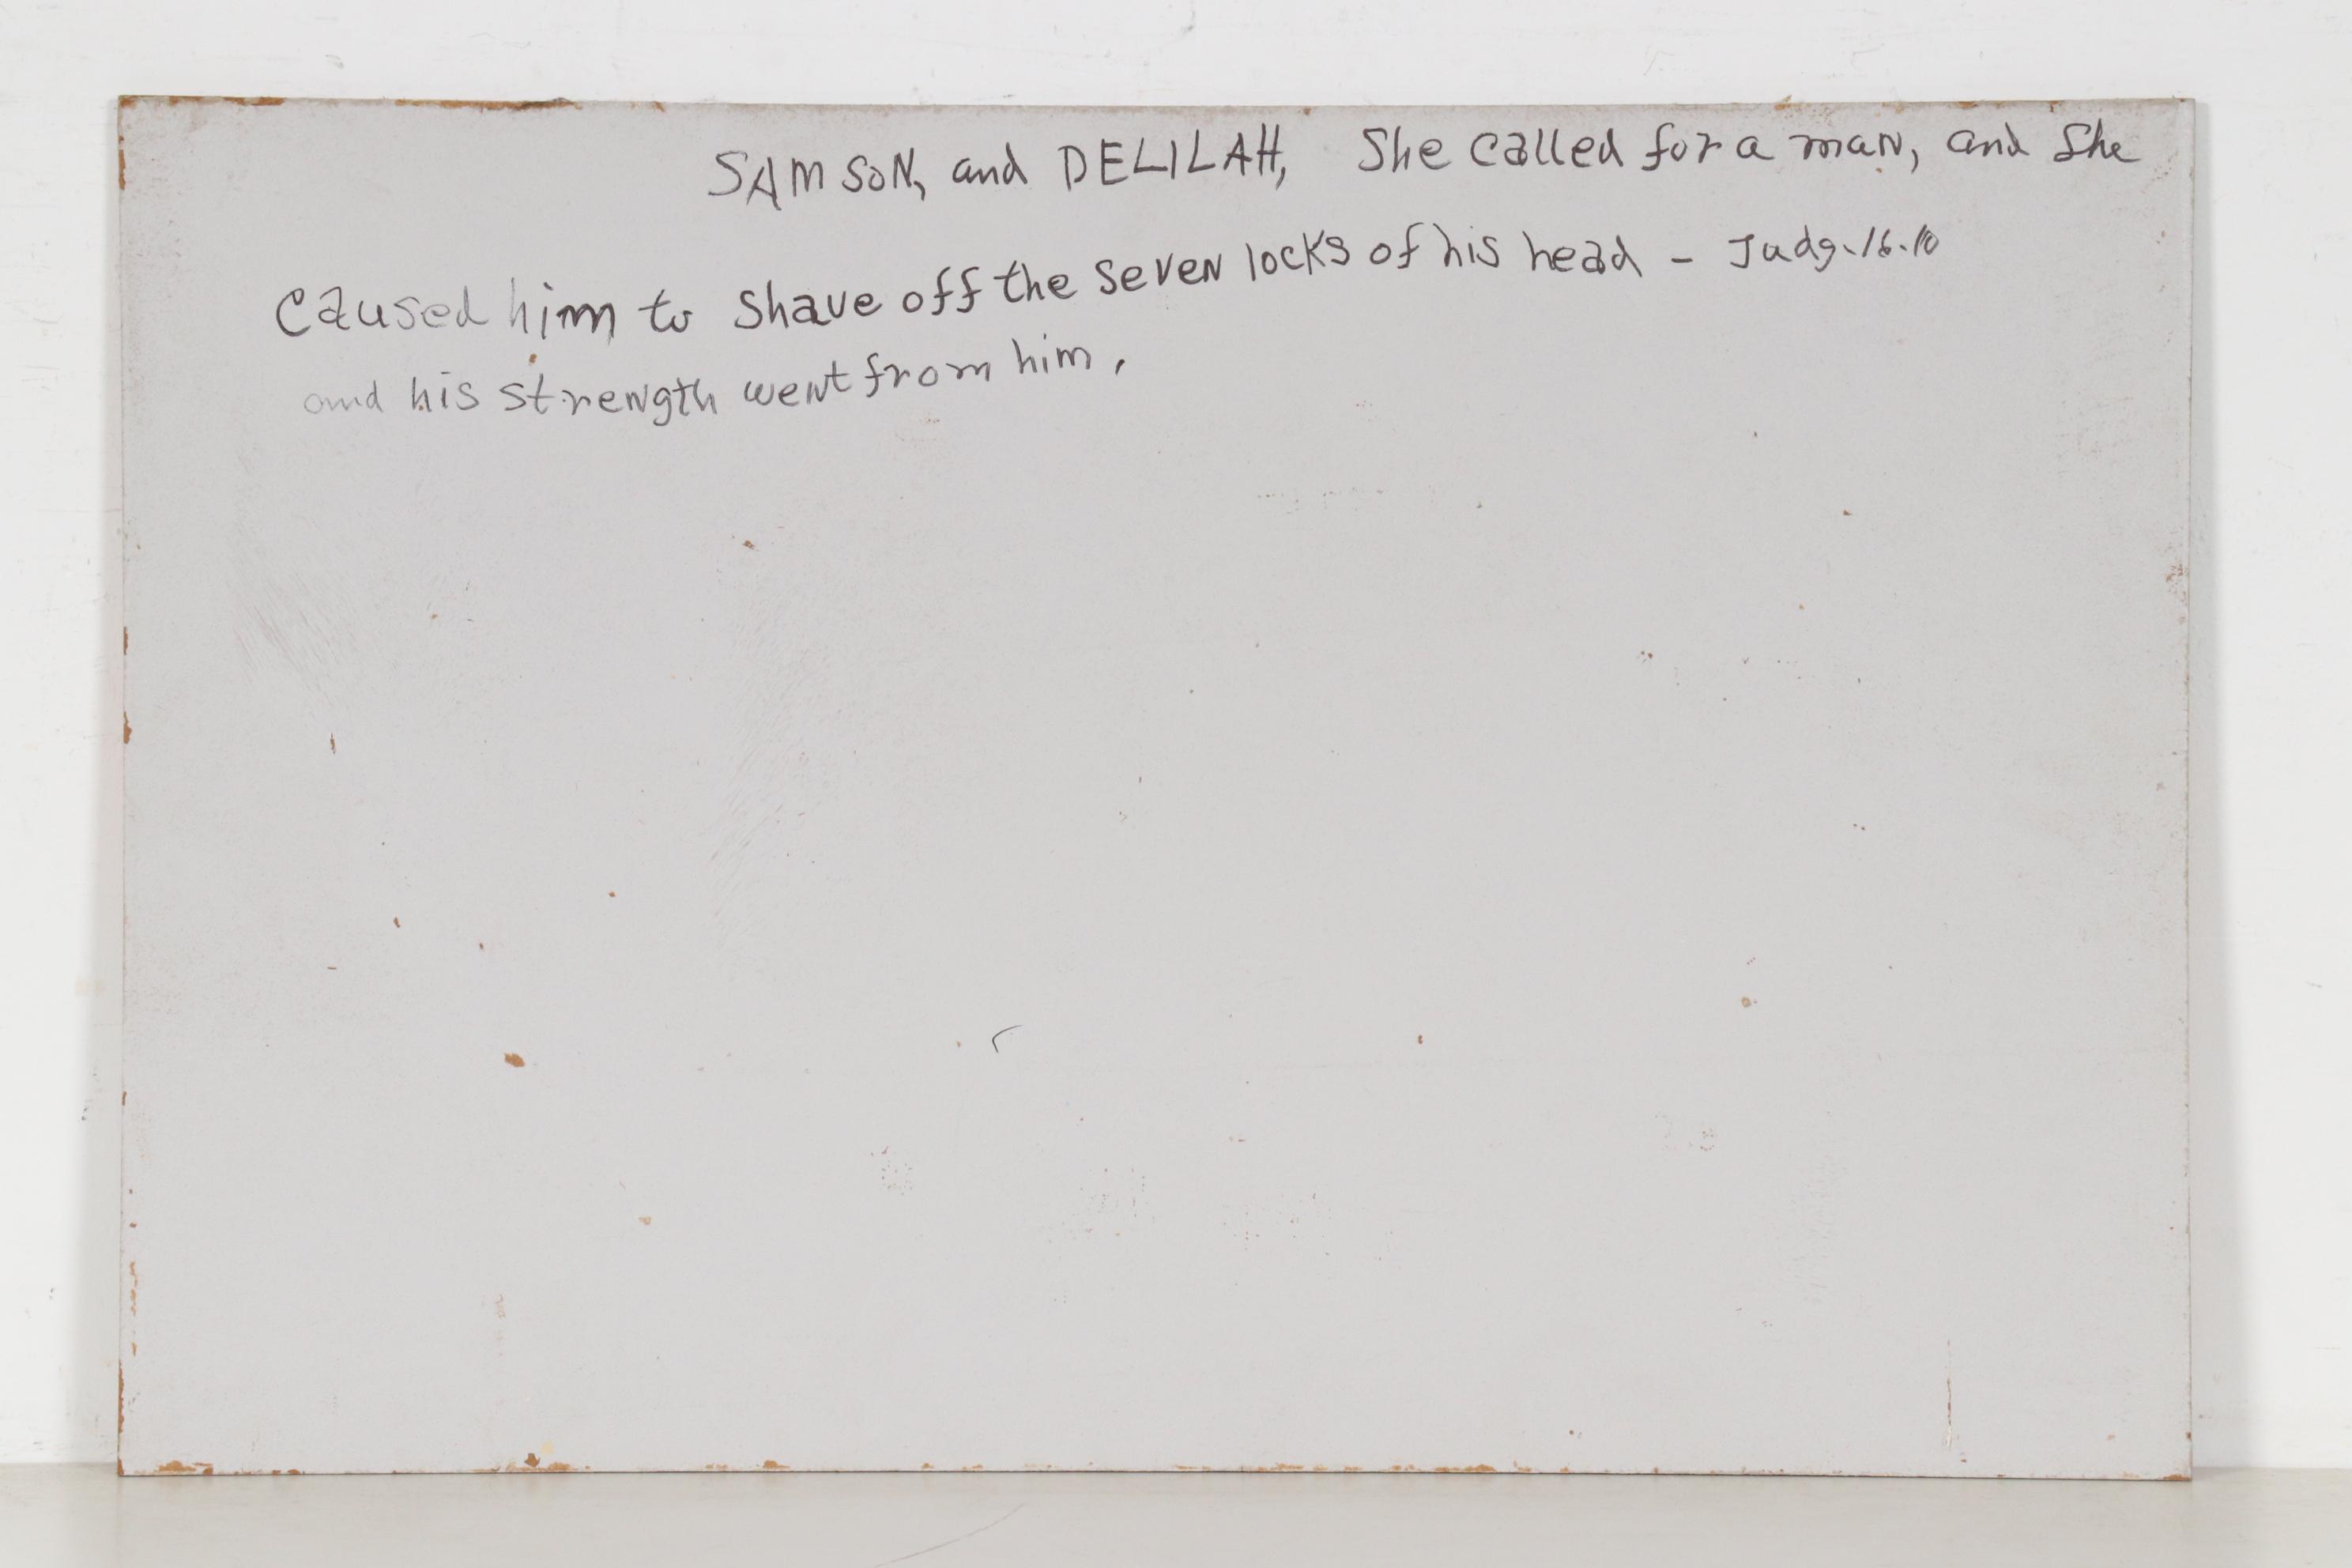 SAMSON, and DELILAH, She called for a man, and She
Caused him to Shave off the Seven locks of his head - Judg. 16.10
and his strength went from him,